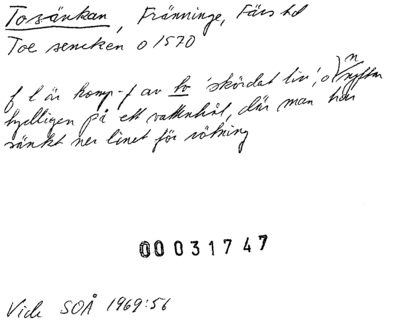 Tosänkan, Fränninge, Färs hd
Toe sencken o 1570
f l är komp-f av to 'skördat lin', o n syftar
tydligen på ett vattenhål, där man har
sänkt ner linet för rötning
00031747
Vide SOÅ 1969:56